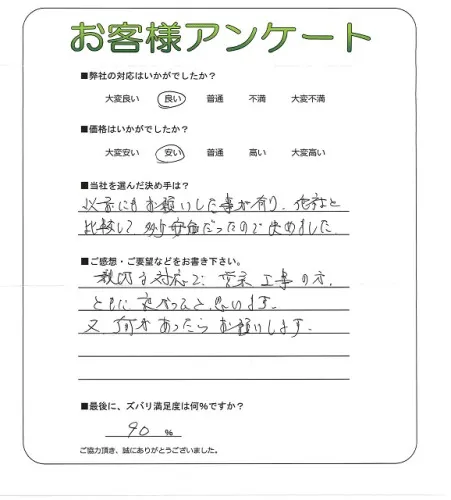 お客様アンケート
■弊社の対応はいかがでしたか？
大変良い 良い 普通 不満 大変不満
■価格はいかがでしたか？
大変安い 安い 普通 高い 大変高い
■当社を選んだ決め手は？
以前にもお願いした事が有り、他社と
比較して 安価だったので決めました。
■ご感想・ご要望などをお書き下さい。
親切な対応で、営業 工事の方、
ともに 良かったと思います。
又、何かあったらお願いします。
■最後に、ズバリ満足度は何％ですか？
90 %
ご協力頂き、誠にありがとうございました。